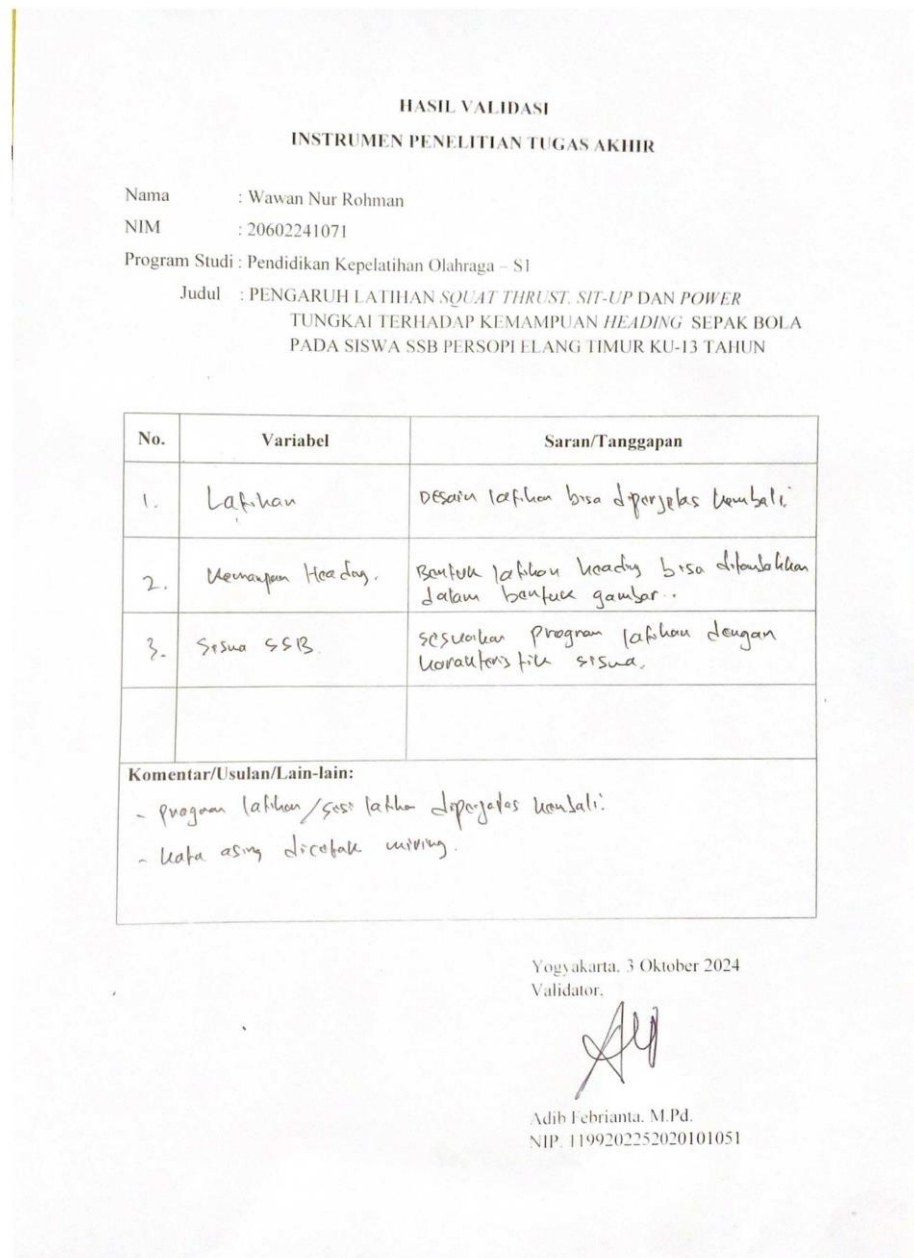 HASIL VALIDASI
INSTRUMEN PENELITIAN TUGAS AKHIR
Nama : Wawan Nur Rohman
NIM : 20602241071
Program Studi : Pendidikan Kepelatihan Olahraga – S1
Judul : PENGARUH LATIHAN SQUAT THRUST, SIT-UP DAN POWER
TUNGKAI TERHADAP KEMAMPUAN HEADING SEPAK BOLA
PADA SISWA SSB PERSOPI ELANG TIMUR KU-13 TAHUN
No. Variabel Saran/Tanggapan
1. Latihan Desain latihan bisa diperjelas kembali.
2. Kemampuan Heading. Bentuk latihan heading bisa ditambahkan
dalam bentuk gambar..
3. Siswa SSB. sesuaikan program latihan dengan
karakteristik siswa.
Komentar/Usulan/Lain-lain:
- program latihan/sesi latihan diperjelas kembali.
- kata asing dicetak miring.
Yogyakarta, 3 Oktober 2024
Validator,
Adib Febrianta, M.Pd.
NIP. 1199202252020101051